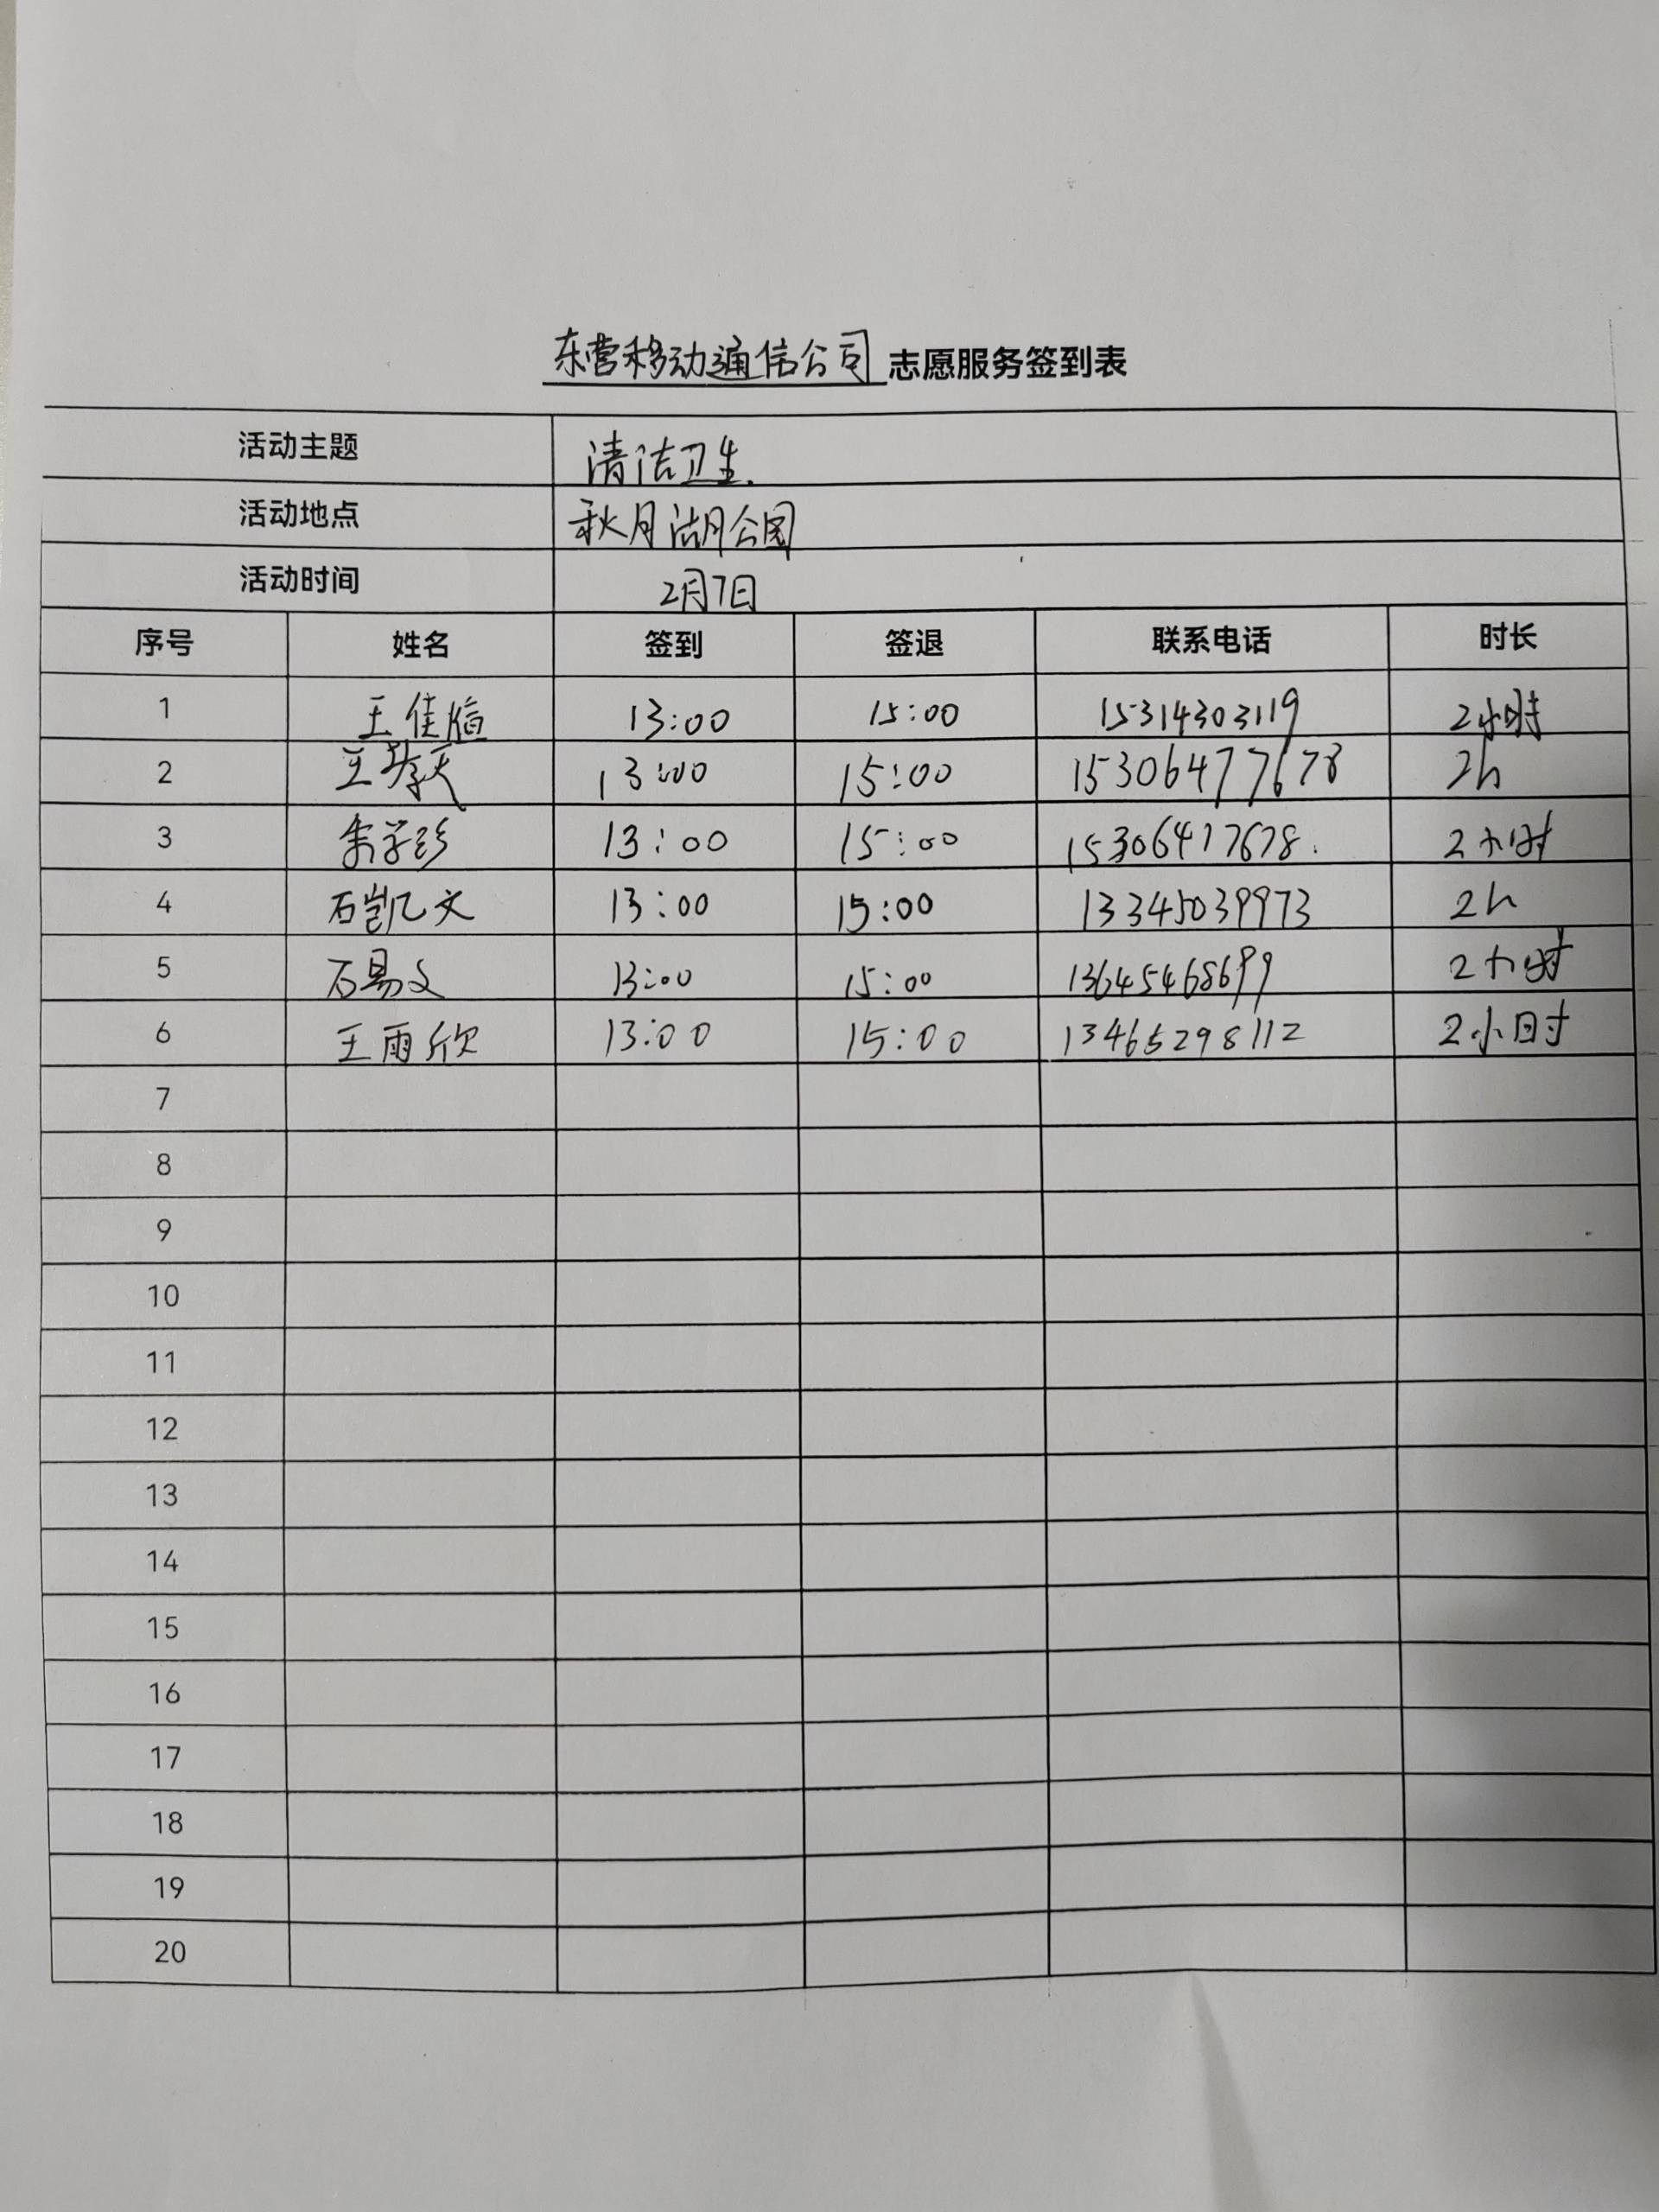 东营移动通信公司 志愿服务签到表
活动主题 清洁卫生.
活动地点 秋月湖公园
活动时间 2月7日
序号 姓名 签到 签退 联系电话 时长
1 王佳 13:00 15:00 15314303119 2小时
2 王 13:00 15:00 15306477678 2h
3 13:00 15:00 15306417678. 2小时
4 石凯文 13:00 15:00 13345039973 2h
5 石易文 13:00 15:00 13645468699 2小时
6 王雨欣 13:00 15:00 13465298112 2小时
7
8
9
10
11
12
13
14
15
16
17
18
19
20